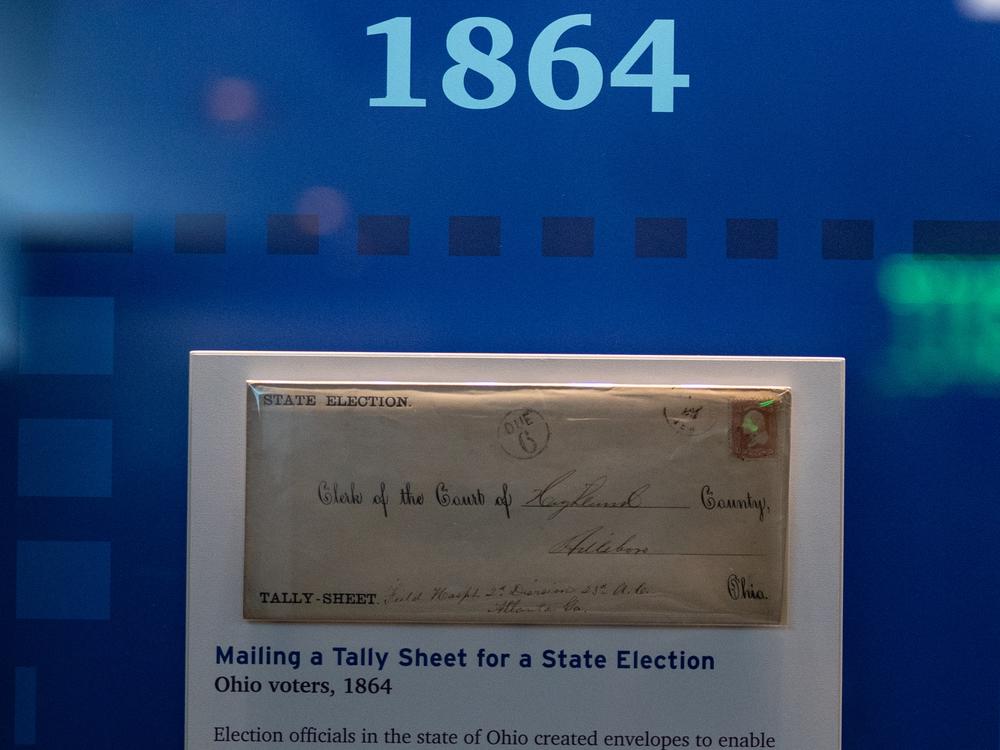 1864
STATE ELECTION.
DUE
6
Clerk of the Court of Highland County,
Hillsboro
Ohio.
TALLY-SHEET. Field Hospt 2d Division 23d A.C.
Atlanta Ga.
Mailing a Tally Sheet for a State Election
Ohio voters, 1864
Election officials in the state of Ohio created envelopes to enable